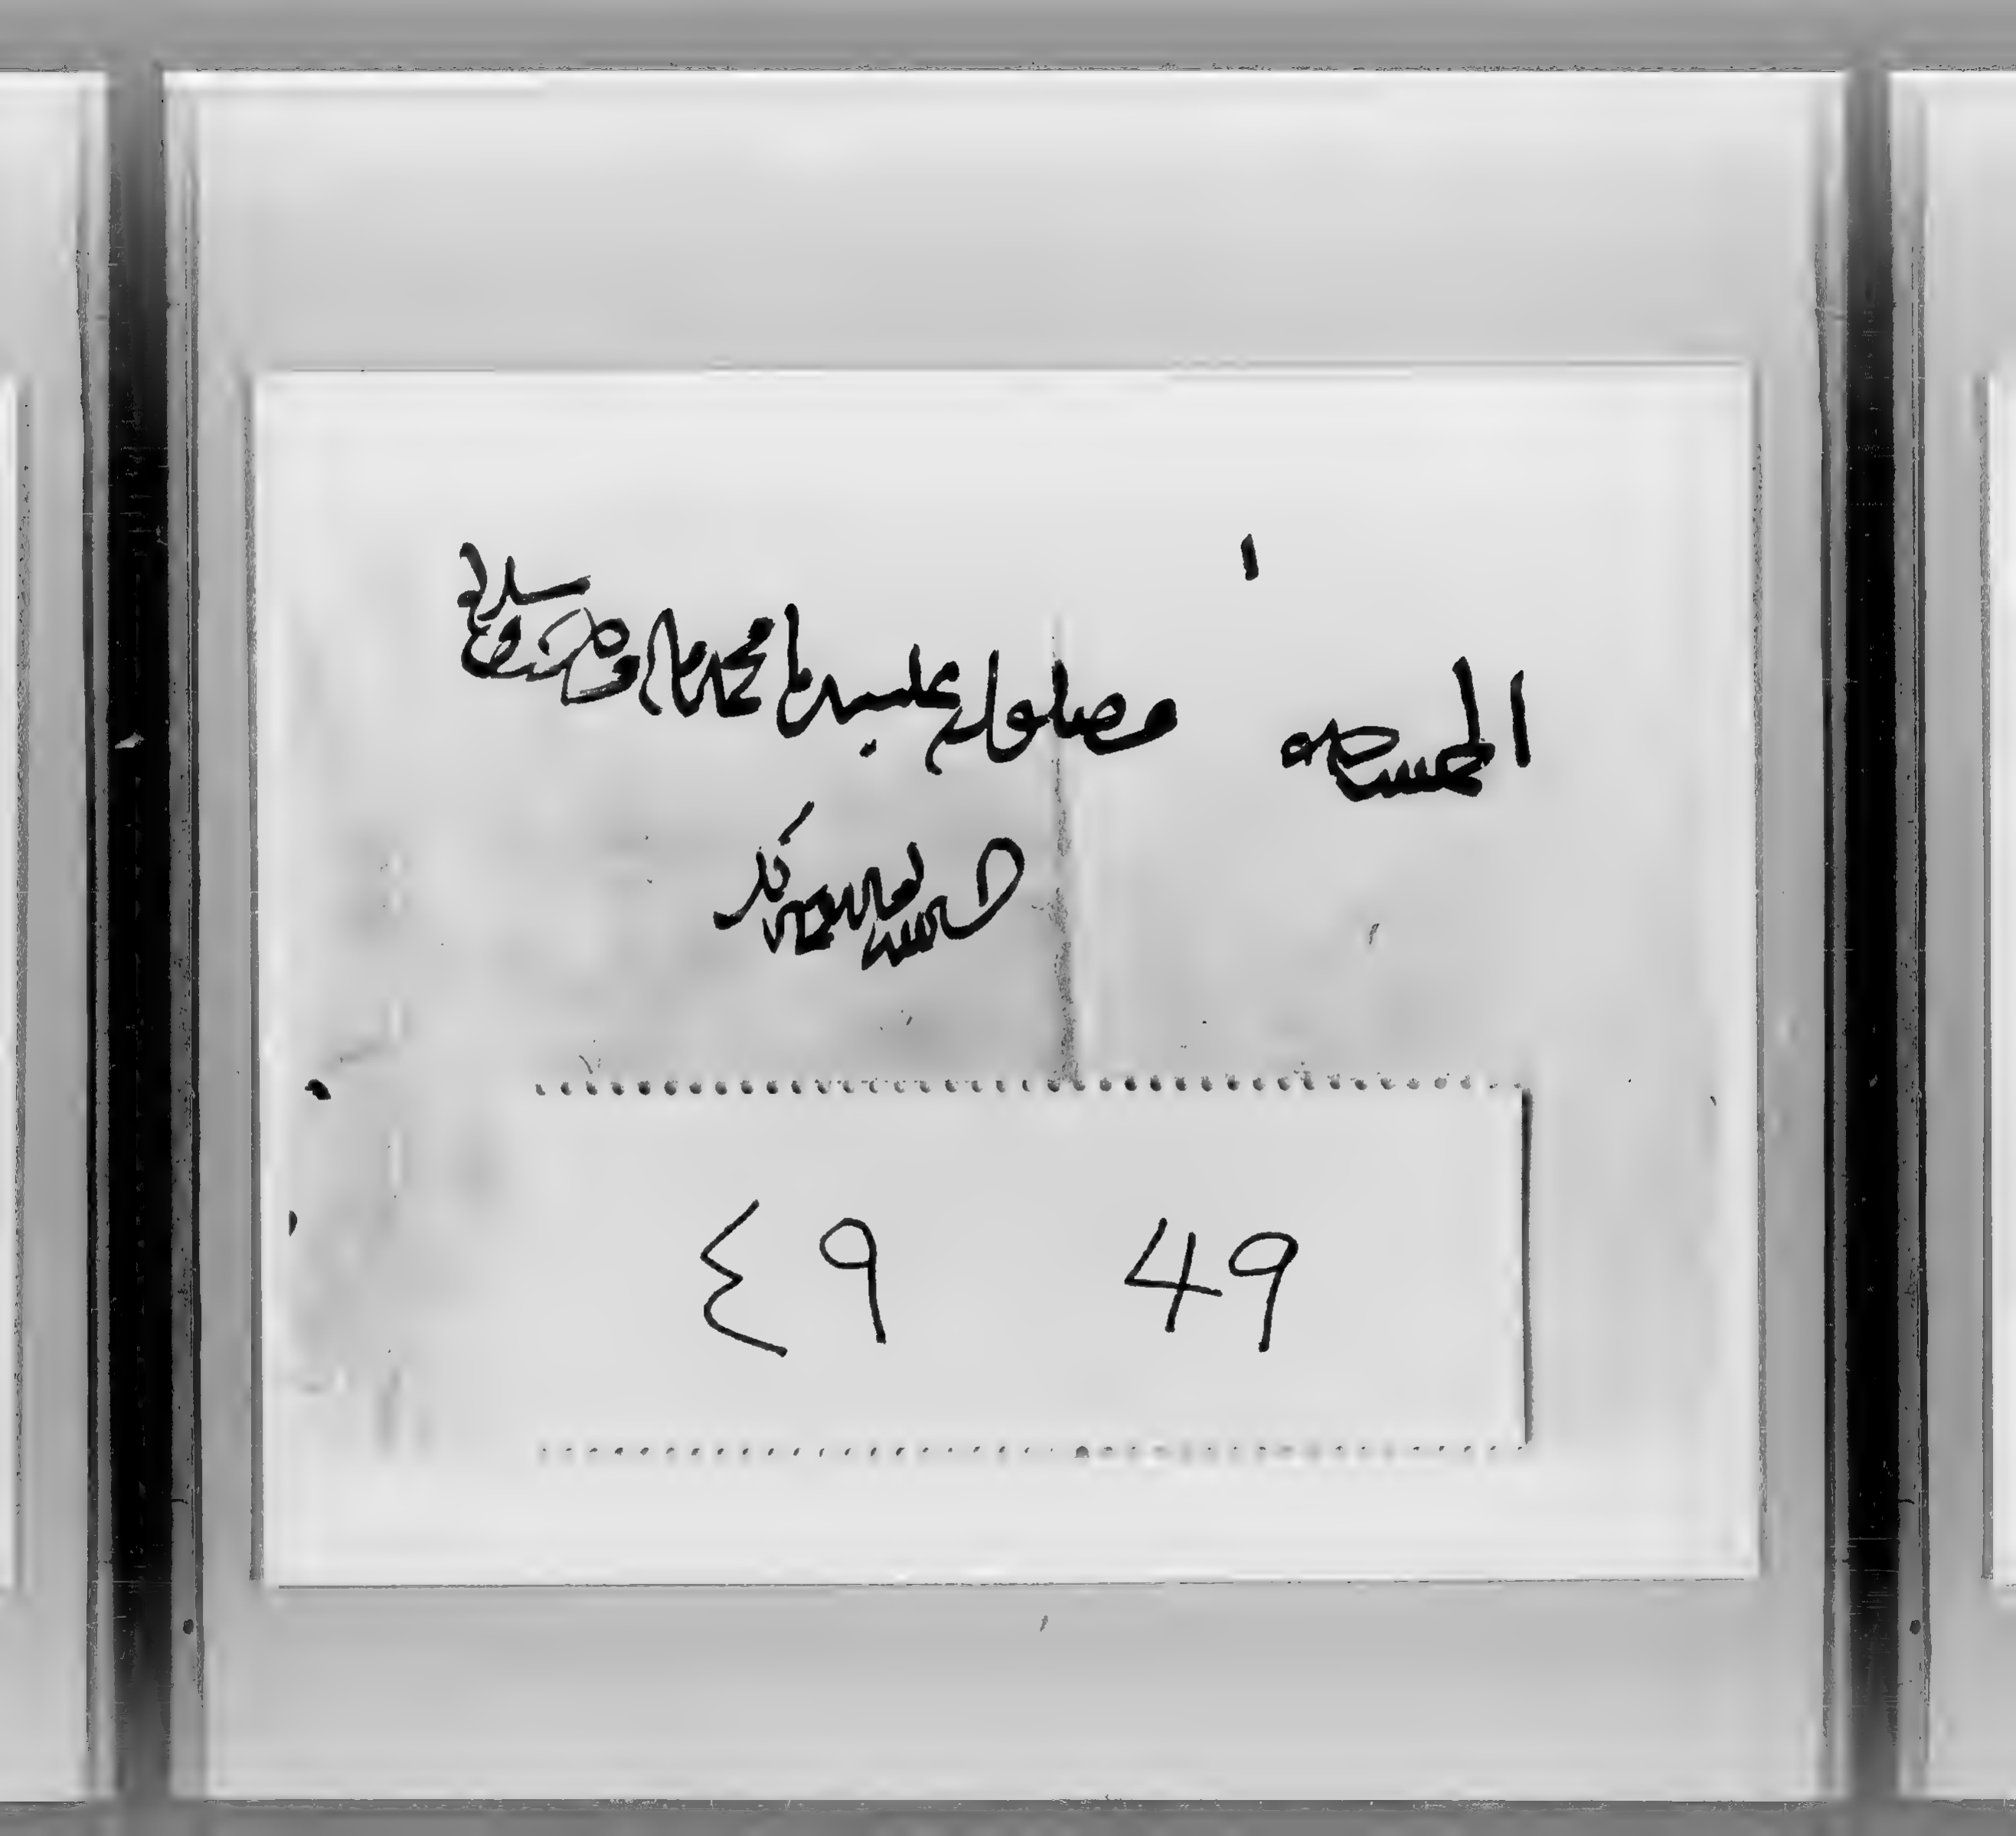 الحمد لله وحده
وصلواته على سيدنا محمد وآله وصحبه وسلامه
حسبنا الله ونعم الوكيل
٤٩ 49